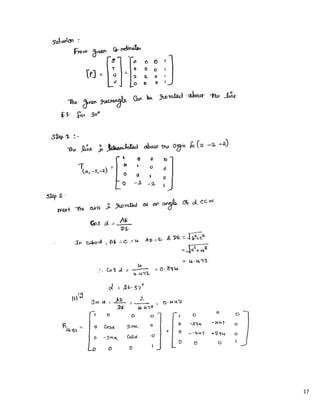 Solution :
From given Co-ordinates
[P] = [S T U V] = [0 0 0 1
0 0 0 1
2 2 0 1
0 2 2 1]
The given rectangle Can be rotated about The line
EF for 30°
Step 1 :-
The line is translated about the Origin to (0 -2 -2)
T(0,-2,-2) = [1 0 0 0
0 1 0 0
0 0 1 0
0 -2 -2 1]
Step 2 :
next The axis is rotated at an angle of α CCW
Cos α = AE / DE
In cuboid, AE = C = 4 AD = 2 & DE = √b²+c²
= 4.472
∴ Cos α = 4 / 4.472 = 0.894
α = 26.57°
111ly
Sin α = AD / DE = 2 / 4.472 = 0.447
= [1 0 0 0
0 Cosα Sinα 0
0 -Sinα Cosα 0
0 0 0 1] = [1 0 0 0
0 .894 .447 0
0 -.447 .894 0
0 0 0 1]
17